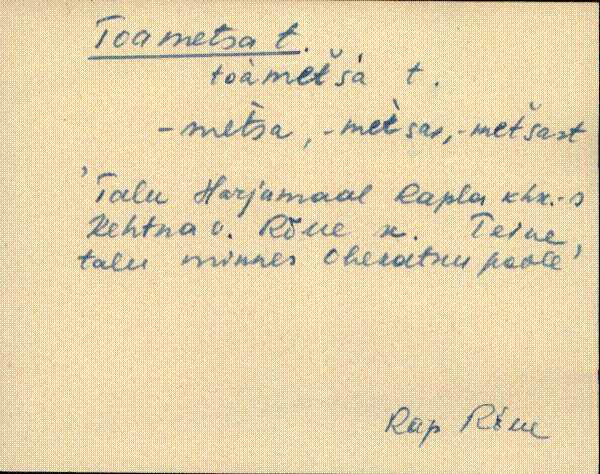 Toametsa t.
toàmet̆šà t.
-mètsa, -mètsas, -metšast
'Talu Harjumaal Rapla khk.-s
Kehtna v. Rõue k. Teine
talu minnes Ohekatku poole'
Rap Rõue